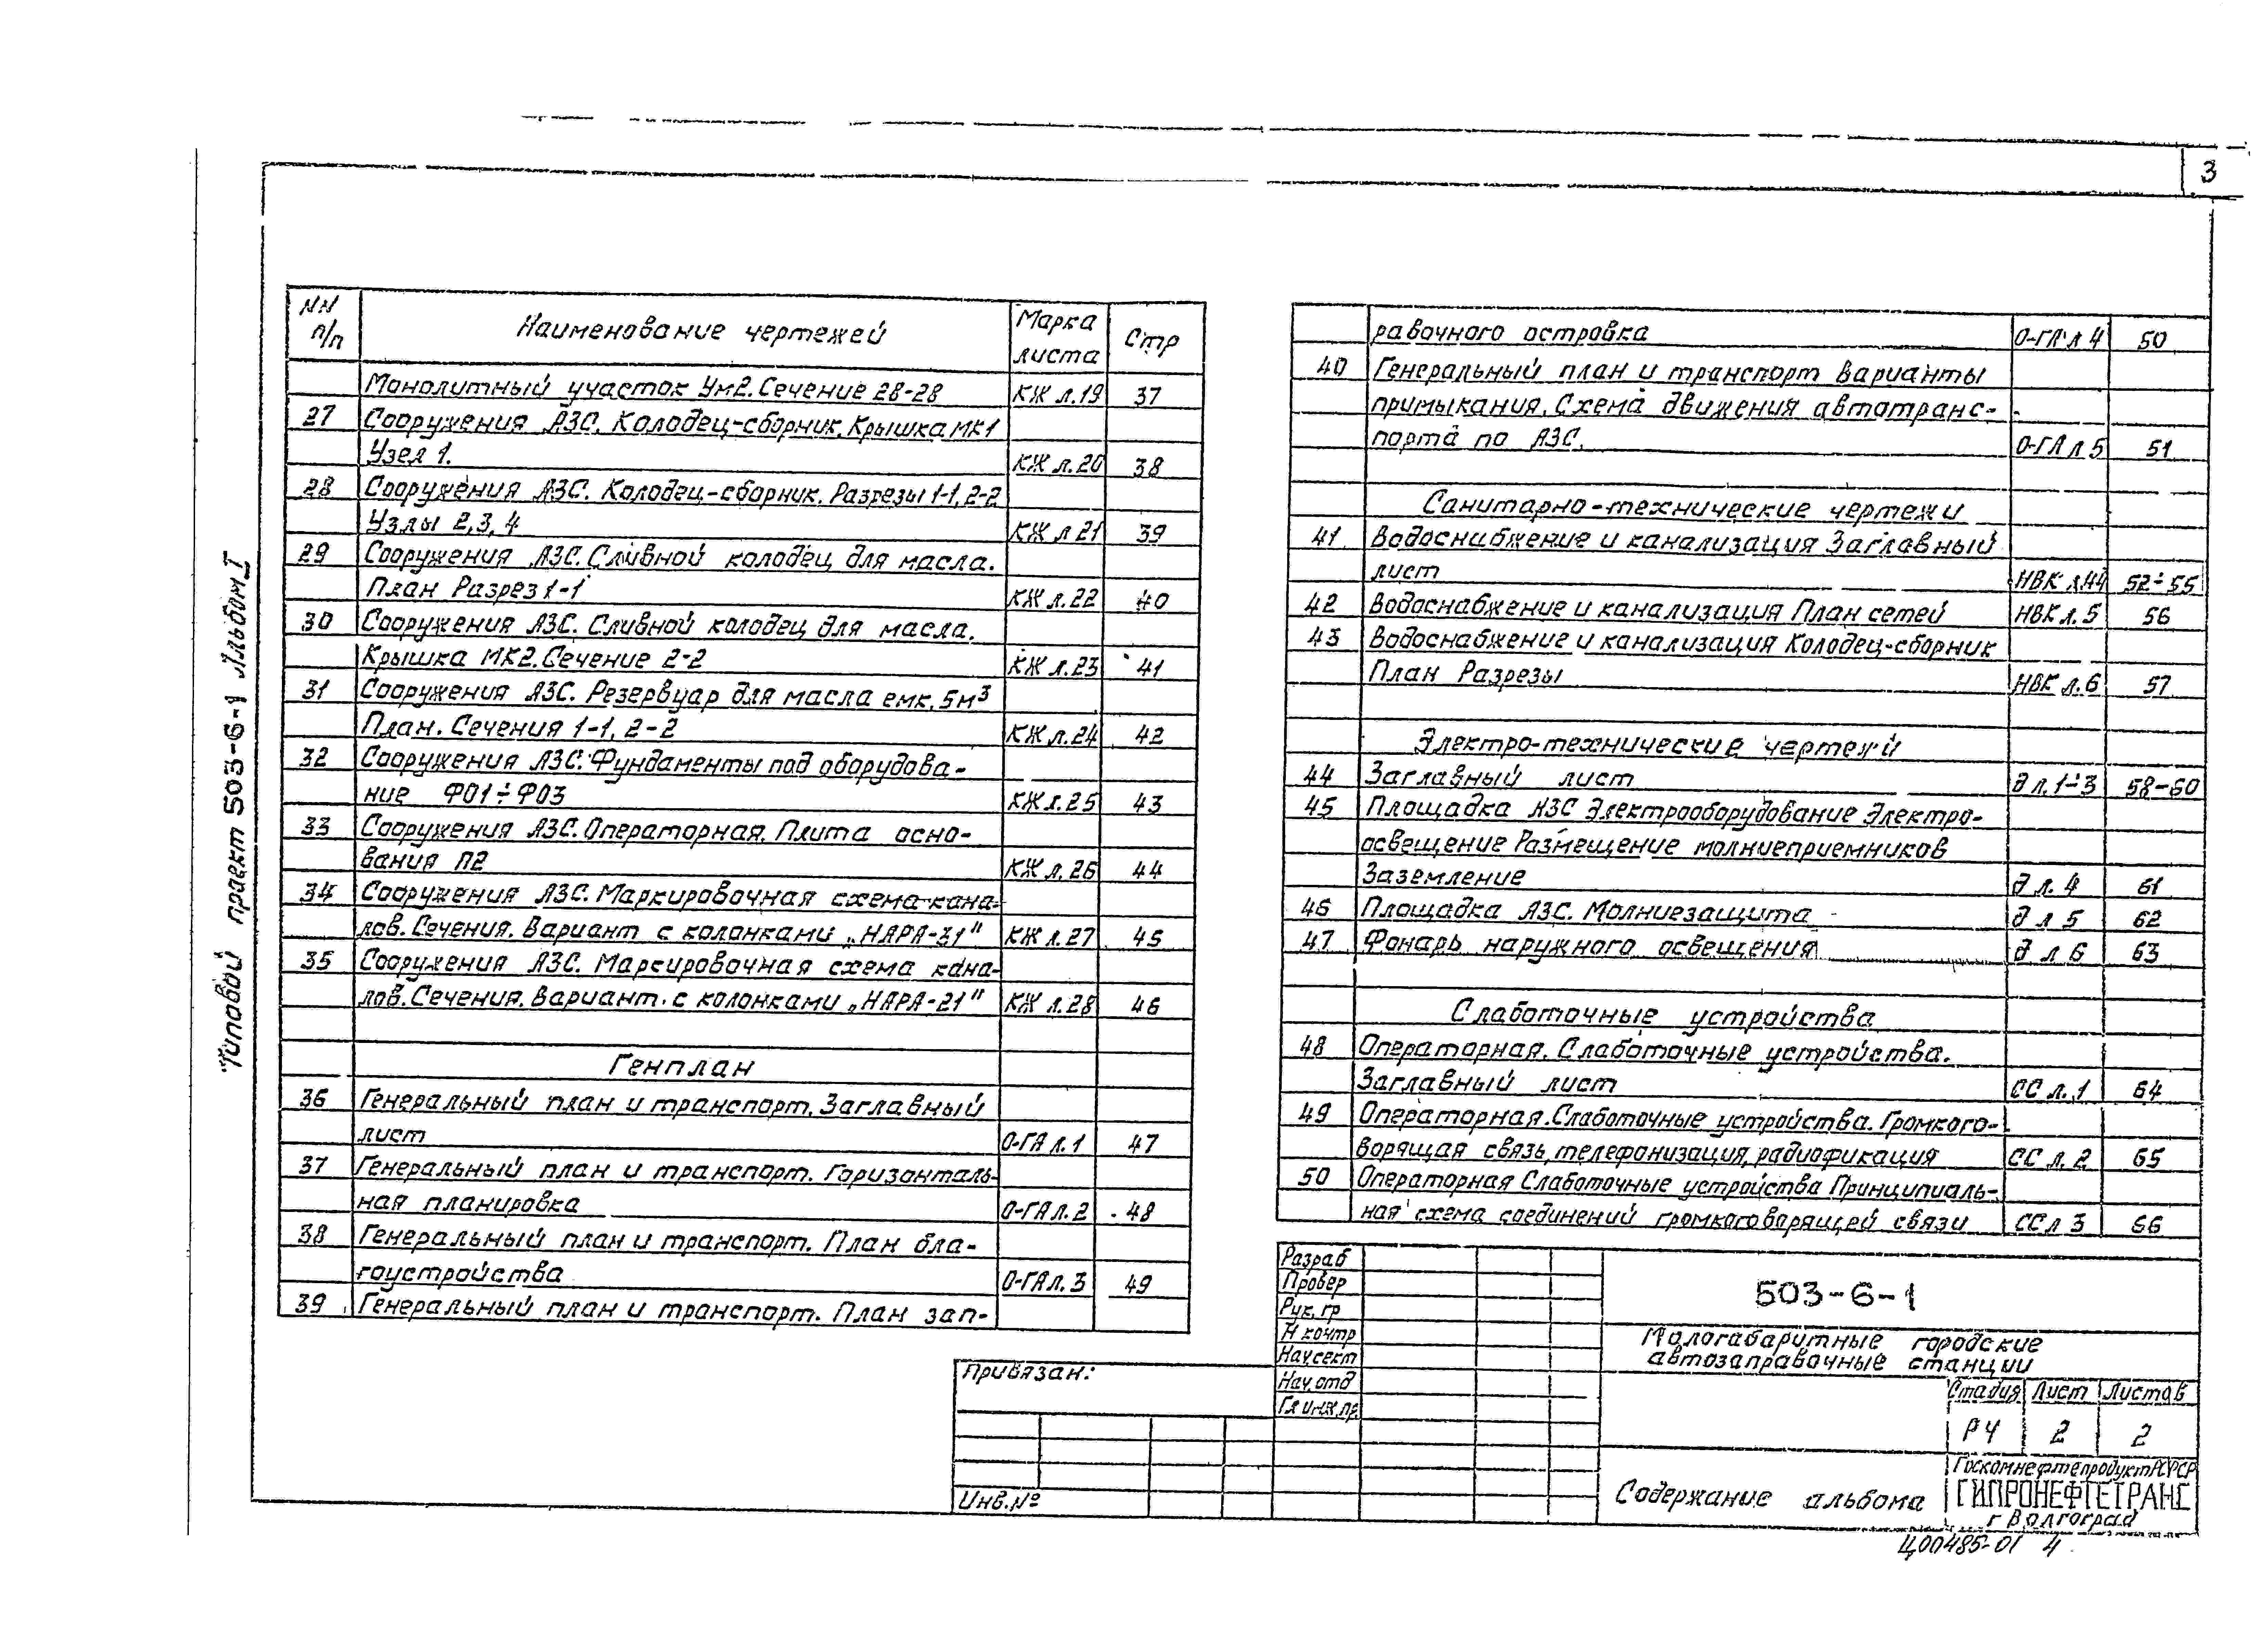 3
Типовой проект 503-6-1 Альбом I
NN п/п Наименование чертежей Марка листа Стр
Монолитный участок Ум2. Сечение 28-28 КЖ л.19 37
27 Сооружения АЗС. Колодец-сборник. Крышка МК1
Узел 1. КЖ л.20 38
28 Сооружения АЗС. Колодец-сборник. Разрезы 1-1, 2-2
Узлы 2, 3, 4 КЖ л 21 39
29 Сооружения АЗС. Сливной колодец для масла.
План Разрез 1-1 КЖ л.22 40
30 Сооружения АЗС. Сливной колодец для масла.
Крышка МК2. Сечение 2-2 КЖ л.23 41
31 Сооружения АЗС. Резервуар для масла емк. 5м³
План. Сечения 1-1, 2-2 КЖ л.24 42
32 Сооружения АЗС. Фундаменты под оборудова-
ние Ф01÷Ф03 КЖ л.25 43
33 Сооружения АЗС. Операторная. Плита осно-
вания П2 КЖ л.26 44
34 Сооружения АЗС. Маркировочная схема кана-
лов. Сечения. Вариант с колонками „НАРА-31" КЖ л.27 45
35 Сооружения АЗС. Маркировочная схема кана-
лов. Сечения. Вариант с колонками „НАРА-21" КЖ л.28 46
Генплан
36 Генеральный план и транспорт. Заглавный
лист О-ГА л.1 47
37 Генеральный план и транспорт. Горизонталь-
ная планировка О-ГА л.2 48
38 Генеральный план и транспорт. План бла-
гоустройства О-ГА л.3 49
39 Генеральный план и транспорт. План зап-
равочного островка О-ГА л 4 50
40 Генеральный план и транспорт Варианты
примыкания. Схема движения автотранс-
порта по АЗС. О-ГА л 5 51
Санитарно-технические чертежи
41 Водоснабжение и канализация Заглавный
лист НВК 52÷55
42 Водоснабжение и канализация План сетей НВК л.5 56
43 Водоснабжение и канализация Колодец-сборник
План Разрезы НВК л.6 57
Электро-технические чертежи
44 Заглавный лист Э л.1÷3 58-60
45 Площадка АЗС Электрооборудование Электро-
освещение Размещение молниеприемников
Заземление Э л. 4 61
46 Площадка АЗС. Молниезащита Э л 5 62
47 Фонарь наружного освещения Э л 6 63
Слаботочные устройства
48 Операторная. Слаботочные устройства.
Заглавный лист СС л.1 64
49 Операторная. Слаботочные устройства. Громкого-
ворящая связь, телефонизация, радиофикация СС л.2 65
50 Операторная Слаботочные устройства Принципиаль-
ная схема соединений громкоговорящей связи СС л 3 66
Разраб
Провер
Рук. гр
Н контр
Нач сект
Нач. отд
Гл инж. пр.
503-6-1
Малогабаритные городские
автозаправочные станции
Стадия Лист Листов
РЧ 2 2
Содержание альбома
Госкомнефтепродукт РСФСР
ГИПРОНЕФТЕТРАНС
г Волгоград
Привязан:
Инв. №
Ц00485-01 4